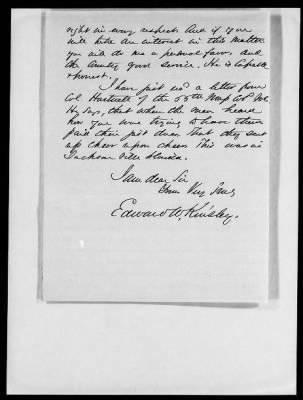 right in every respect and if you
will take an interest in this matter
you will do me a personal favor, and
the Country good service. He is Capable
& honest.
I have just rec'd a letter from
Col. Hartwell of the 55th Mass Col Vol.
He says, that when the men heard
how you were trying to have them
paid their just dues that they sent
up cheer upon cheer This was in
Jacksonville Florida.
I am dear Sir
Your Very
Edward W. Kinsley.